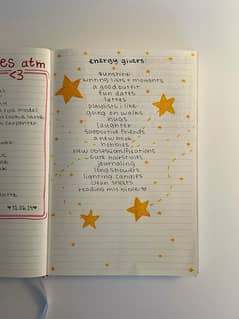 es atm
<3
energy givers
sunshine
writing lists + moments
a good outfit
fun dates
lattes
playlists i like
going on walks
hugs
laughter
supportive friends
a new book
hobbies
new obsessions/fixations
cute hairstyles
journaling
long showers
lighting candles
clean sheets
reading my bible ♡